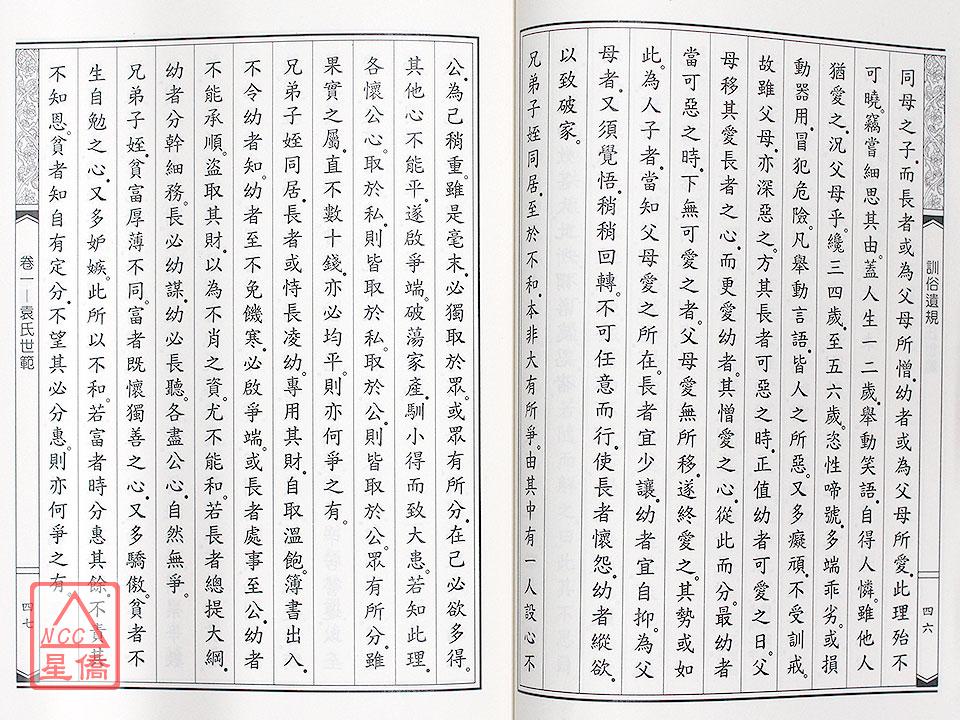 訓俗遺規
四六
同母之子。而長者或為父母所憎。幼者或為父母所愛。此理殆不
可曉。竊嘗細思其由。蓋人生一二歲。舉動笑語。自得人憐。雖他人
猶愛之。況父母乎。纔三四歲。至五六歲。恣性啼號。多端乖劣。或損
動器用。冒犯危險。凡舉動言語。皆人之所惡。又多癡頑。不受訓戒。
故雖父母。亦深惡之。方其長者可惡之時。正值幼者可愛之日。父
母移其愛長者之心。而更愛幼者。其憎愛之心。從此而分。最幼者
當可惡之時。下無可愛之者。父母愛無所移。遂終愛之。其勢或如
此。為人子者。當知父母愛之所在。長者宜少讓。幼者宜自抑。為父
母者。又須覺悟。稍稍回轉。不可任意而行。使長者懷怨。幼者縱欲。
以致破家。
兄弟子姪同居。至於不和。本非大有所爭。由其中有一人設心不
公。為己稍重。雖是毫末。必獨取於眾。或眾有所分。在己必欲多得。
其他心不能平。遂啟爭端。破蕩家產。馴小得而致大患。若知此理。
各懷公心。取於私。則皆取於私。取於公。則皆取於公。眾有所分。雖
果實之屬。直不數十錢。亦必均平。則亦何爭之有。
兄弟子姪同居。長者或恃長凌幼。專用其財。自取溫飽。簿書出入。
不令幼者知。幼者至不免饑寒。必啟爭端。或長者處事至公。幼者
不能承順。盜取其財。以為不肖之資。尤不能和。若長者總提大綱。
幼者分幹細務。長必幼謀。幼必長聽。各盡公心。自然無爭。
兄弟子姪。貧富厚薄不同。富者既懷獨善之心。又多驕傲。貧者不
生自勉之心。又多妒嫉。此所以不和。若富者時分惠其餘。不責其
不知恩。貧者知自有定分。不望其必分惠。則亦何爭之有。
卷一—袁氏世範
四七
NCC
星僑